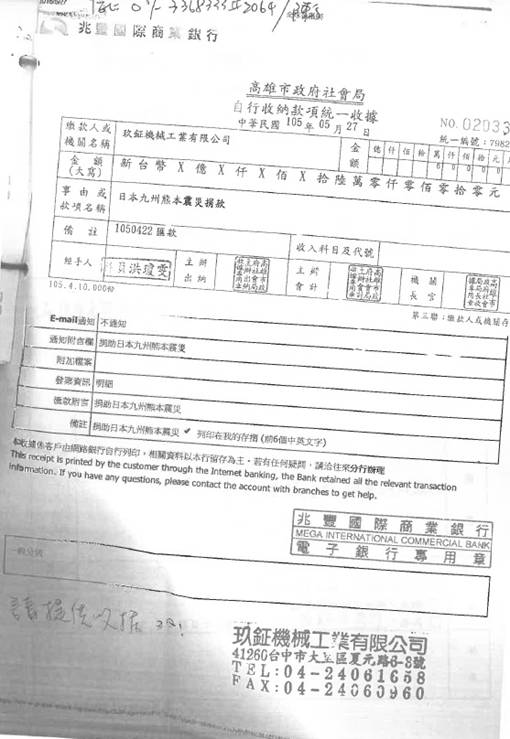 兆豐國際商業銀行
高雄市政府社會局
自行收納款項統一收據
中華民國 105 年 05 月 27 日
NO. 02033
統一編號：7982
繳款人或機關名稱 玖鉦機械工業有限公司
金額 億 仟 佰 拾 萬 仟 佰 拾 元
6 0 0 0 0
金額(大寫) 新台幣 X 億 X 仟 X 佰 X 拾 陸 萬 零 仟 零 佰 零 拾 零 元
事由或款項名稱 日本九州熊本震災捐款
備註 1050422 匯款 收入科目及代號
經手人 主辦出納 主辦會計 機關長官
105.4.10,000份
第三聯：繳款人或機關存
E-mail通知 不通知
通知附言欄 捐助日本九州熊本震災
附加檔案
發票資訊 明細
匯款附言 捐助日本九州熊本震災
備註 捐助日本九州熊本震災 ✔ 列印在我的存摺 (前6個中英文字)
本收據係客戶由網路銀行自行列印，相關資料以本行留存為主，若有任何疑問，請洽往來分行辦理
This receipt is printed by the customer through the Internet banking, the Bank retained all the relevant transaction
information. If you have any questions, please contact the account with branches to get help.
兆豐國際商業銀行
MEGA INTERNATIONAL COMMERCIAL BANK
電子銀行專用章
請提供收據
玖鉦機械工業有限公司
41260台中市大里區夏元路6-8號
TEL:04-24061658
FAX:04-24060960